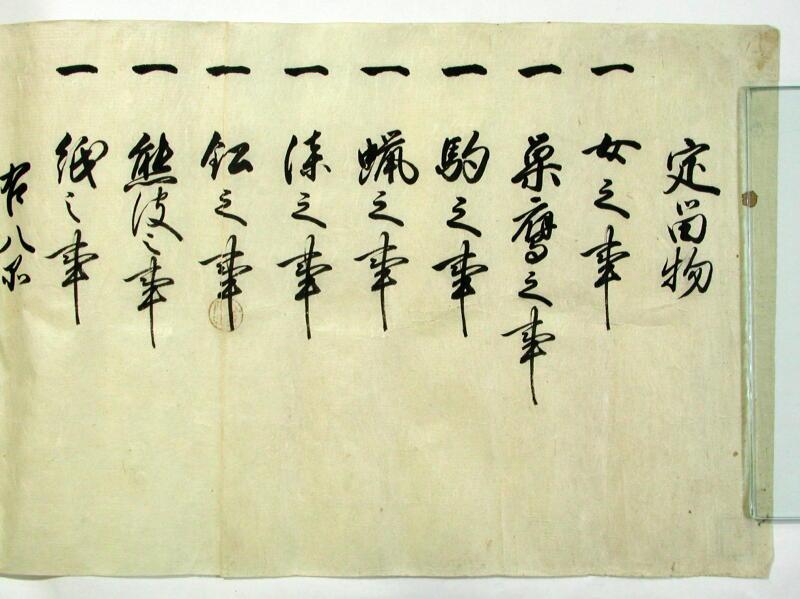 定留物
一 女之事
一 巣鷹之事
一 駒之事
一 蝋之事
一 漆之事
一 鉛之事
一 熊皮之事
一 紙之事
右八ヶ条